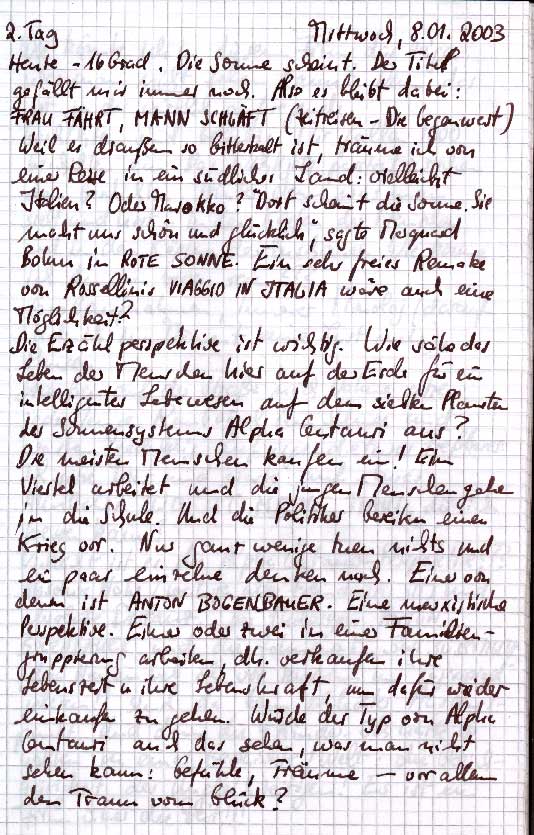 2. Tag Mittwoch, 8.01.2003
Heute -16 Grad. Die Sonne scheint. Der Titel
gefällt mir immer noch. Also es bleibt dabei:
FRAU FÄHRT, MANN SCHLÄFT (Zeitreisen - Die Gegenwart)
Weil es draußen so bitterkalt ist, träume ich von
einer Reise in ein südliches Land: vielleicht
Italien? Oder Marokko? "Dort scheint die Sonne. Sie
macht uns schön und glücklich", sagte Marquard
Bohm in ROTE SONNE. Ein sehr freies Remake
von Rossellinis VIAGGIO IN ITALIA wäre auch eine
Möglichkeit?
Die Erzählperspektive ist wichtig. Wie sähe das
Leben der Menschen hier auf der Erde für ein
intelligentes Lebewesen auf dem siebten Planeten
des Sonnensystems Alpha Centauri aus?
Die meisten Menschen kaufen ein! Ein
Viertel arbeitet und die jungen Menschen gehen
in die Schule. Und die Politiker bereiten einen
Krieg vor. Nur ganz wenige tuen nichts und
ein paar einzelne denken nach. Einer von
denen ist ANTON BOGENBAUER. Eine marxistische
Perspektive. Einer oder zwei in einer Familien-
gruppierung arbeiten, dh. verkaufen ihre
Lebenszeit u ihre Lebenskraft, um dafür wieder
einkaufen zu gehen. Würde der Typ von Alpha
Centauri auch das sehen, was man nicht
sehen kann: Gefühle, Träume – vor allem
den Traum vom Glück?